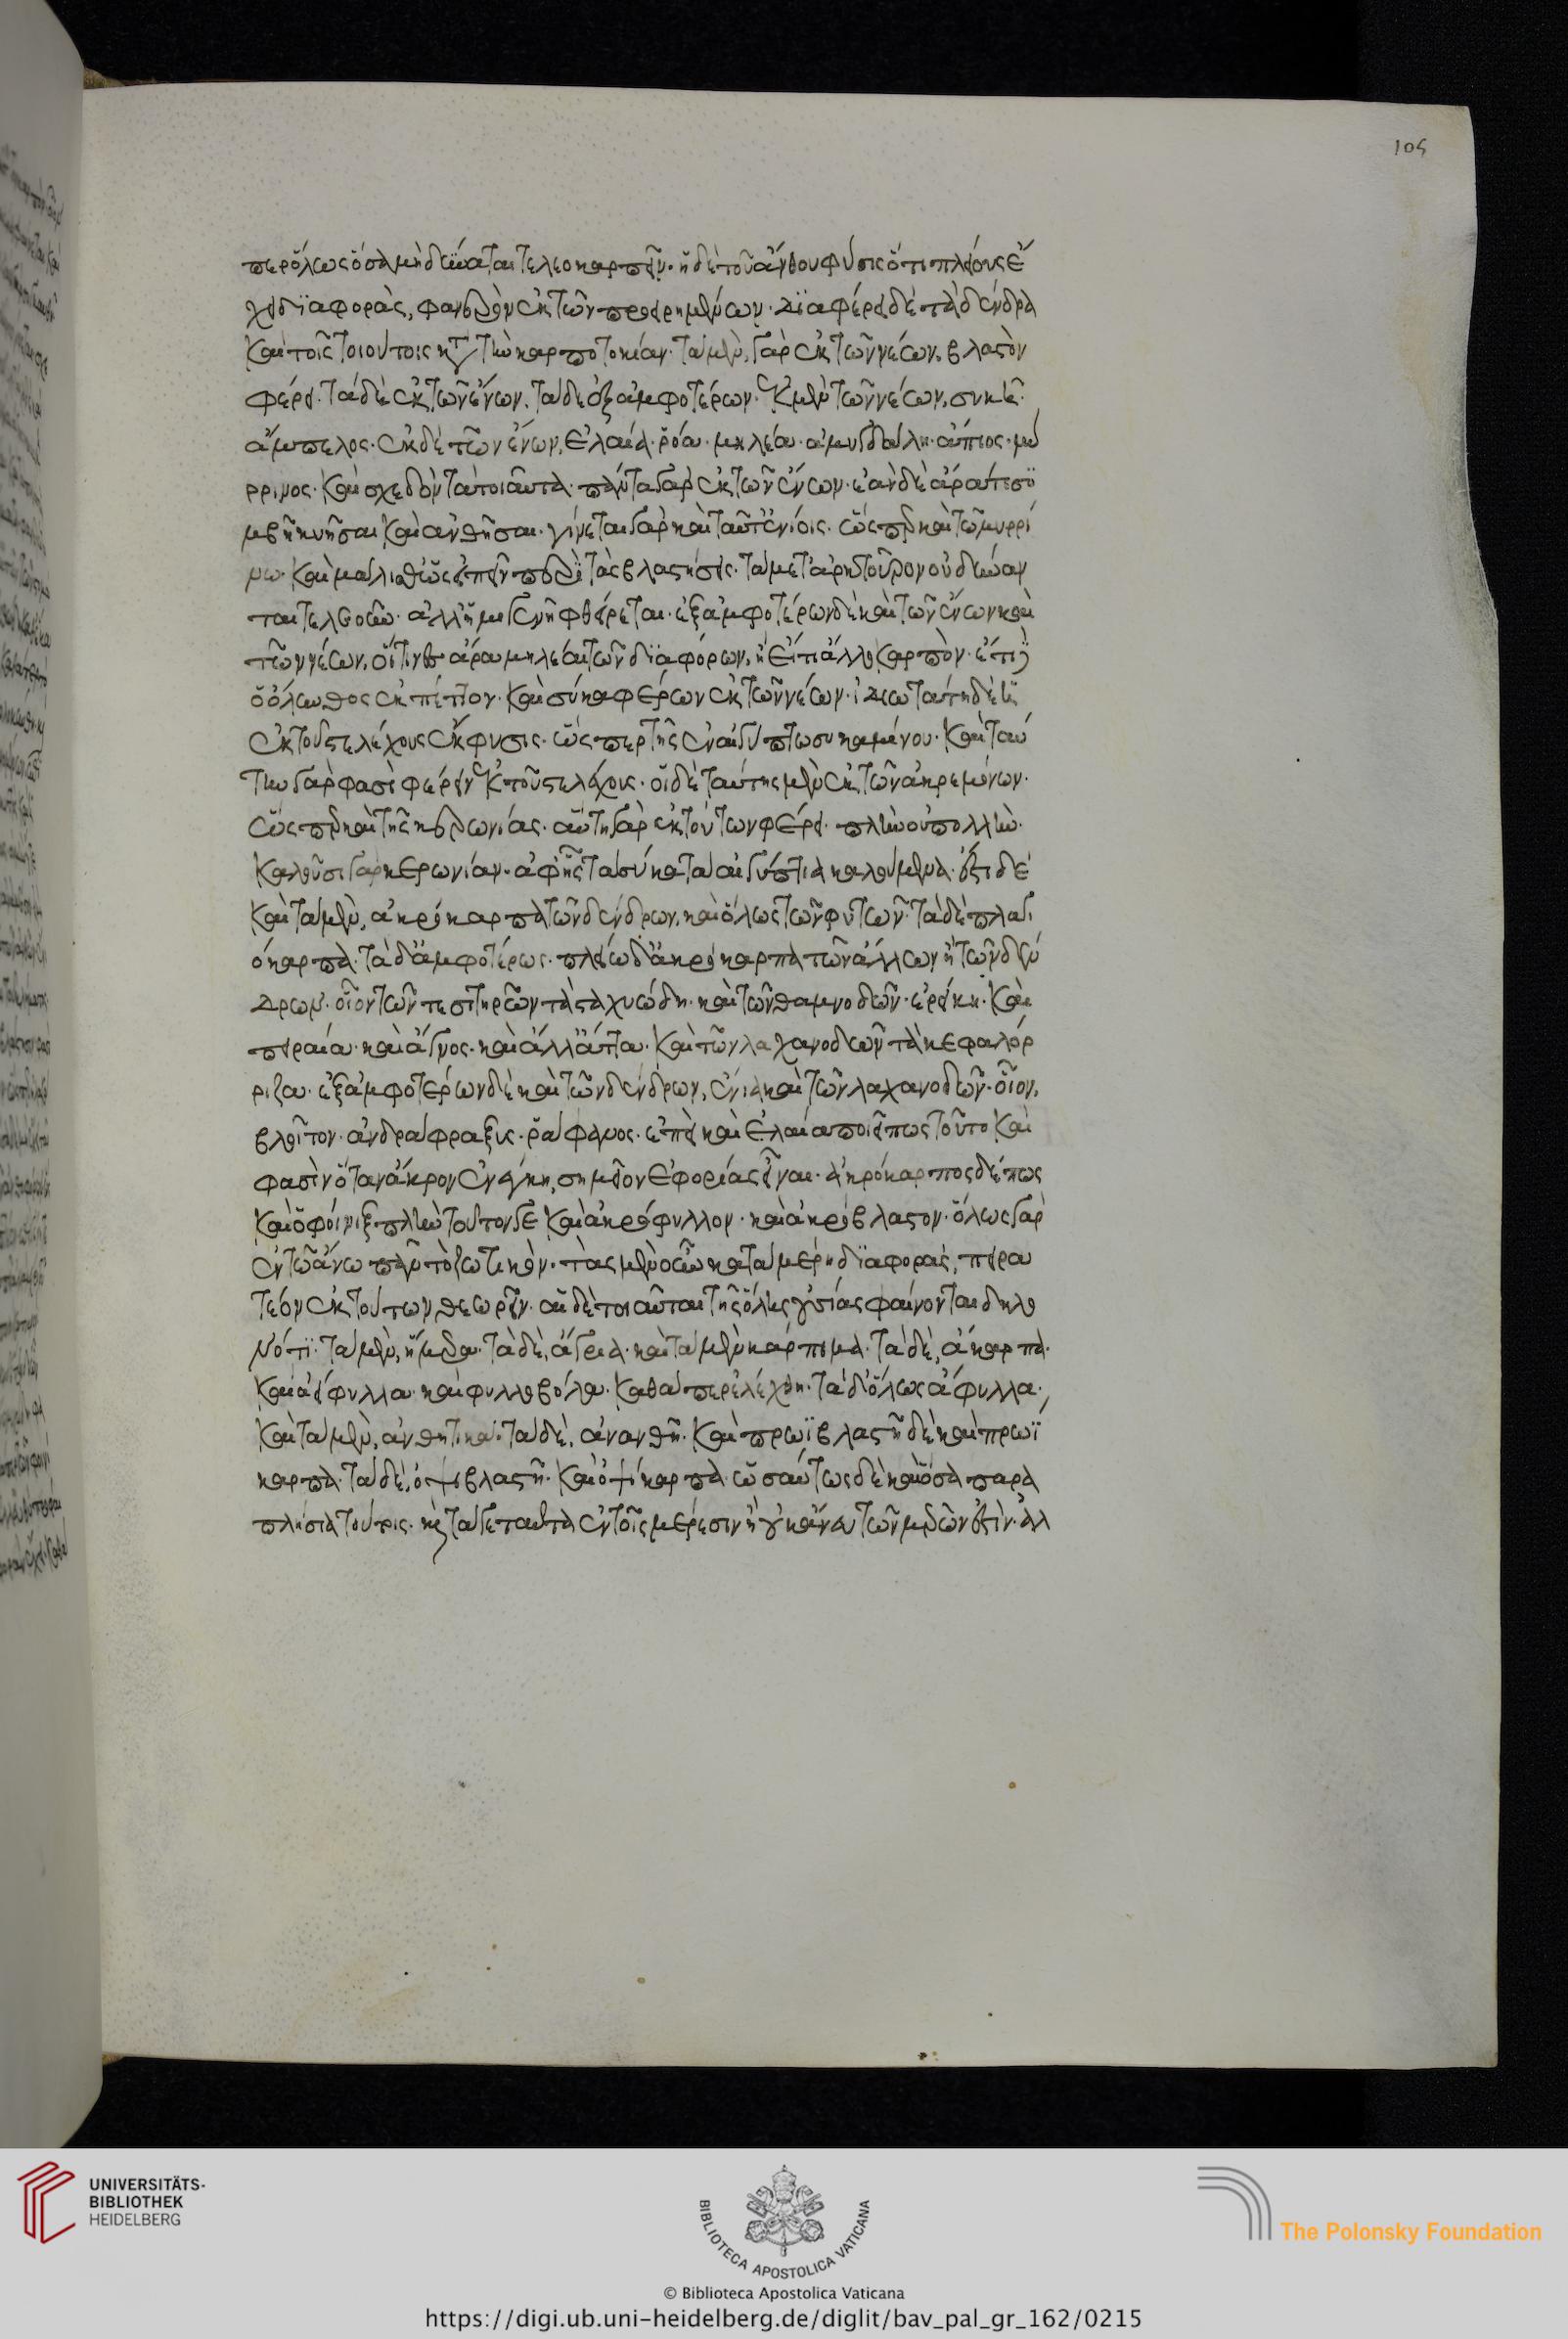 105
περ ὅλως ὅσα μὴ δύναται τελεοκαρπεῖν· ἡ δὲ τοῦ ἄνθου φύσις ὅτι πλείους ἔ
χει διαφορὰς, φανερὸν ἐκ τῶν προειρημένων· διαφέρει δὲ τὰ δένδρα
καὶ τοῖς τοιούτοις κατὰ τὴν καρποτοκίαν· τὰ μὲν γὰρ ἐκ τῶν νέων βλαστῶν
φέρει· τὰ δὲ ἐκ τῶν ἔνων. τὰ δὲ ἐξ ἀμφοτέρων· ἐκ μὲν τῶν νέων, συκῆ·
ἄμπελος· ἐκ δὲ τῶν ἔνων, ἐλαία· ῥόα· μηλέα· ἀμυγδάλη· ἄπιος· μύ
ρρινος· καὶ σχεδὸν τὰ τοιαῦτα πάντα γὰρ ἐκ τῶν ἔνων· ἐὰν δὲ ἄρα τι συ
μβῇ κυῆσαι καὶ ἀνθῆσαι· γίνεται γὰρ καὶ ταῦτ' ἐνίοις· ὥσπερ καὶ τῷ μυρρί
νῳ· καὶ μάλισθ' ὡς εἰπεῖν περὶ τὰς βλαστήσεις· τὰ μετ' ἀρκτοῦρον οὐ δύναν
ται τελεοῦν· ἀλλ' ἡμιγενῆ φθείρεται· ἐξ ἀμφοτέρων δὲ καὶ τῶν ἔνων καὶ
τῶν νέων, εἴ τινες ἄρα μηλέαι τῶν διφόρων, ἢ εἴ τι ἄλλο καρπὸν· ἔτι
ὁ ὄλυνθος ἐκπέττων· καὶ σῦκα φέρων ἐκ τῶν νέων· ἰδιωτάτη δὲ ἡ
ἐκ τοῦ στελέχους ἔκφυσις· ὥσπερ τῆς ἐν αἰγύπτῳ συκαμίνου· καὶ ταύ
την γάρ φασι φέρειν ἐκ τοῦ στελέχους· οἱ δὲ ταύτης μὲν ἐκ τῶν ἀκρεμόνων·
ὥσπερ καὶ τῆς κερωνίας· αὕτη γὰρ ἐκ τούτων φέρει· πλὴν οὐ πολλὴν·
καλοῦσι γὰρ κερωνίαν· ἀφ' ἧς τὰ σῦκα τὰ αἰγύπτια καλούμενα· ἔστι δὲ
καὶ τὰ μὲν, ἀκρόκαρπα τῶν δένδρων, καὶ ὅλως τῶν φυτῶν· τὰ δὲ πλαγι
όκαρπα· τὰ δ' ἀμφοτέρως· πλείω δ' ἀκρόκαρπα τῶν ἄλλων ἢ τῶν δέν
δρων· οἷον τῶν τε σιτηρῶν τὰ σταχυώδη· καὶ τῶν θαμνοδῶν· ἐρείκη· καὶ
σπειραία· καὶ ἄγνος· καὶ ἄλλ' ἄττα· καὶ τῶν λαχανοδῶν τὰ κεφαλόρ
ριζα· ἐξ ἀμφοτέρων δὲ καὶ τῶν δένδρων, ἔνια καὶ τῶν λαχανοδῶν· οἷον,
βλῖτον· ἀνδράφραξις· ῥάφανος· ἐπεὶ καὶ ἐλαία ποιεῖ πως τοῦτο καὶ
φασὶν ὅταν ἄκρον ἐνέγκῃ, σημεῖον εὐφορίας εἶναι· ἀκρόκαρπος δέ πως
καὶ ὁ φοίνιξ πλὴν τοῦτόν γε καὶ ἀκρόφυλλον· καὶ ἀκρόβλαστον· ὅλως γὰρ
ἐν τῷ ἄνω πᾶν τὸ ζωτικὸν· τὰς μὲν οὖν κατὰ μέρη διαφορὰς, πειρα
τέον ἐκ τούτων θεωρεῖν· αἱ δὲ τοιαῦται τῆς ὅλης οὐσίας φαίνονται δηλο
νότι· τὰ μὲν, ἥμερα· τὰ δὲ, ἄγρια· καὶ τὰ μὲν κάρπιμα· τὰ δὲ, ἄκαρπα·
καὶ ἀείφυλλα· καὶ φυλλοβόλα· καθάπερ ἐλέχθη· τὰ δ' ὅλως ἄφυλλα·
καὶ τὰ μὲν, ἀνθητικὰ· τὰ δὲ, ἀνανθῆ· καὶ πρωϊβλαστῆ δὲ καὶ πρωϊ
καρπα· τὰ δὲ, ὀψιβλαστῆ· καὶ ὀψίκαρπα· ὡσαύτως δὲ καὶ ὅσα παρα
πλήσια τούτοις· καὶ τά γε ταῦτα ἐν τοῖς μέρεσιν ἢ οὐκ ἄνευ τῶν μερῶν ἐστὶν· ἀλ
UNIVERSITÄTS-
BIBLIOTHEK
HEIDELBERG
BIBLIOTECA APOSTOLICA VATICANA
The Polonsky Foundation
© Biblioteca Apostolica Vaticana
https://digi.ub.uni-heidelberg.de/diglit/bav_pal_gr_162/0215